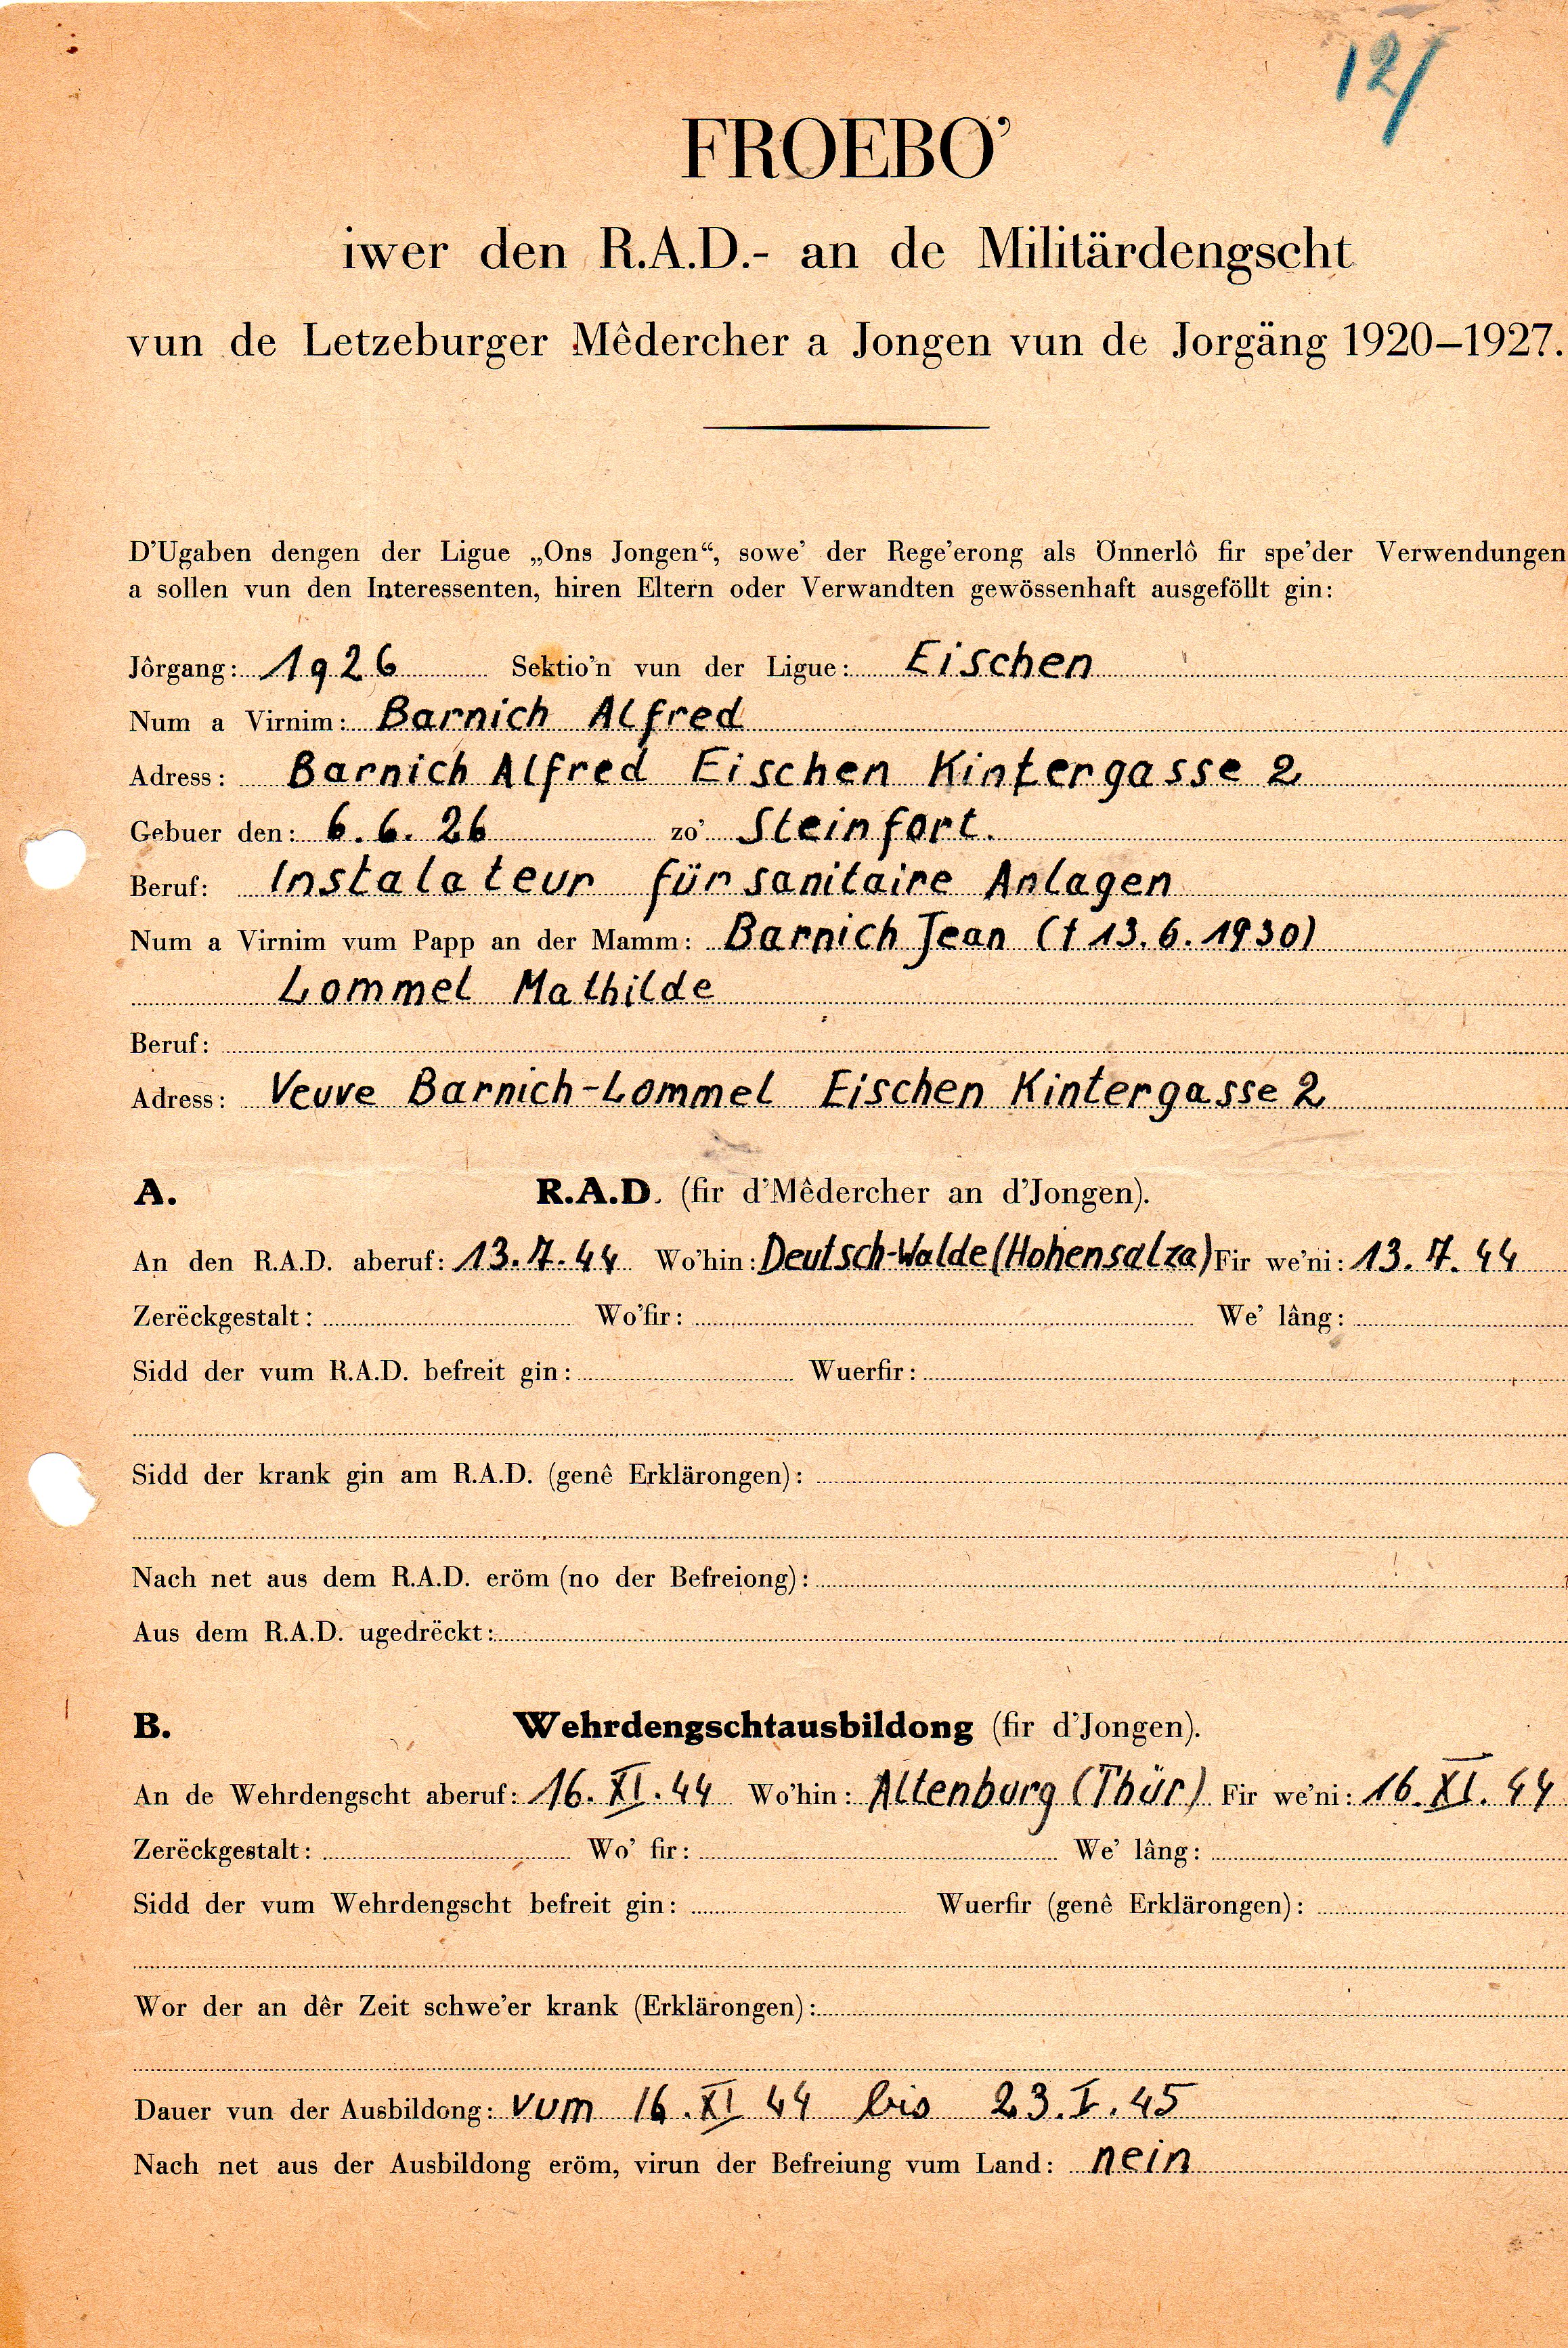 12/
FROEBO’
iwer den R.A.D.- an de Militärdengscht
vun de Letzeburger Mêdercher a Jongen vun de Jorgäng 1920–1927.
D’Ugaben dengen der Ligue „Ons Jongen“, sowe’ der Rege’erong als Önnerlô fir spe’der Verwendungen
a sollen vun den Interessenten, hiren Eltern oder Verwandten gewössenhaft ausgeföllt gin:
Jôrgang: 1926 Sektio’n vun der Ligue: Eischen
Num a Virnim: Barnich Alfred
Adress: Barnich Alfred Eischen Kintergasse 2
Gebuer den: 6.6.26 zo’ Steinfort.
Beruf: Instalateur für sanitaire Anlagen
Num a Virnim vum Papp an der Mamm: Barnich Jean († 13.6.1930)
Lommel Mathilde
Beruf:
Adress: Veuve Barnich-Lommel Eischen Kintergasse 2
A. R.A.D. (fir d’Mêdercher an d’Jongen).
An den R.A.D. aberuf: 13.7.44 Wo’hin: Deutsch-Walde (Hohensalza) Fir we’ni: 13.7.44
Zerëckgestalt: Wo’fir: We’ lâng:
Sidd der vum R.A.D. befreit gin: Wuerfir:
Sidd der krank gin am R.A.D. (genê Erklärongen):
Nach net aus dem R.A.D. eröm (no der Befreiong):
Aus dem R.A.D. ugedrëckt:
B. Wehrdengschtausbildong (fir d’Jongen).
An de Wehrdengscht aberuf: 16.XI.44 Wo’hin: Altenburg (Thür) Fir we’ni: 16.XI.44
Zerëckgestalt: Wo’ fir: We’ lâng:
Sidd der vum Wehrdengscht befreit gin: Wuerfir (genê Erklärongen):
Wor der an dêr Zeit schwe’er krank (Erklärongen):
Dauer vun der Ausbildong: vum 16.XI 44 bis 23.I.45
Nach net aus der Ausbildong eröm, virun der Befreiung vum Land: nein